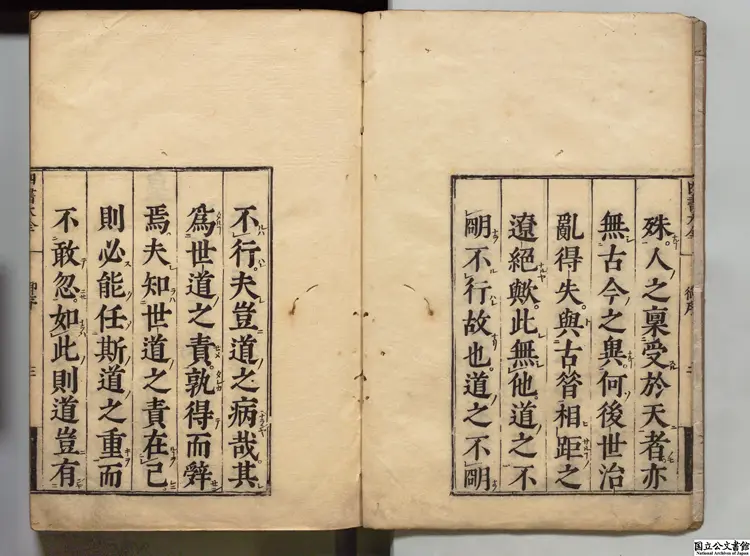 四書大全 御序 二
殊。人之稟受於天者。亦
無古今之異。何後世治
亂得失。與古昝相距之
遼絕歟。此無他。道之不
明不行故也。道之不明
不行。夫豈道之病哉。其
爲世道之責。孰得而辤
焉。夫知世道之責在己
則必能任斯道之重而
不敢忽。如此則道豈有
四書大全 御序 三
国立公文書館
National Archives of Japan